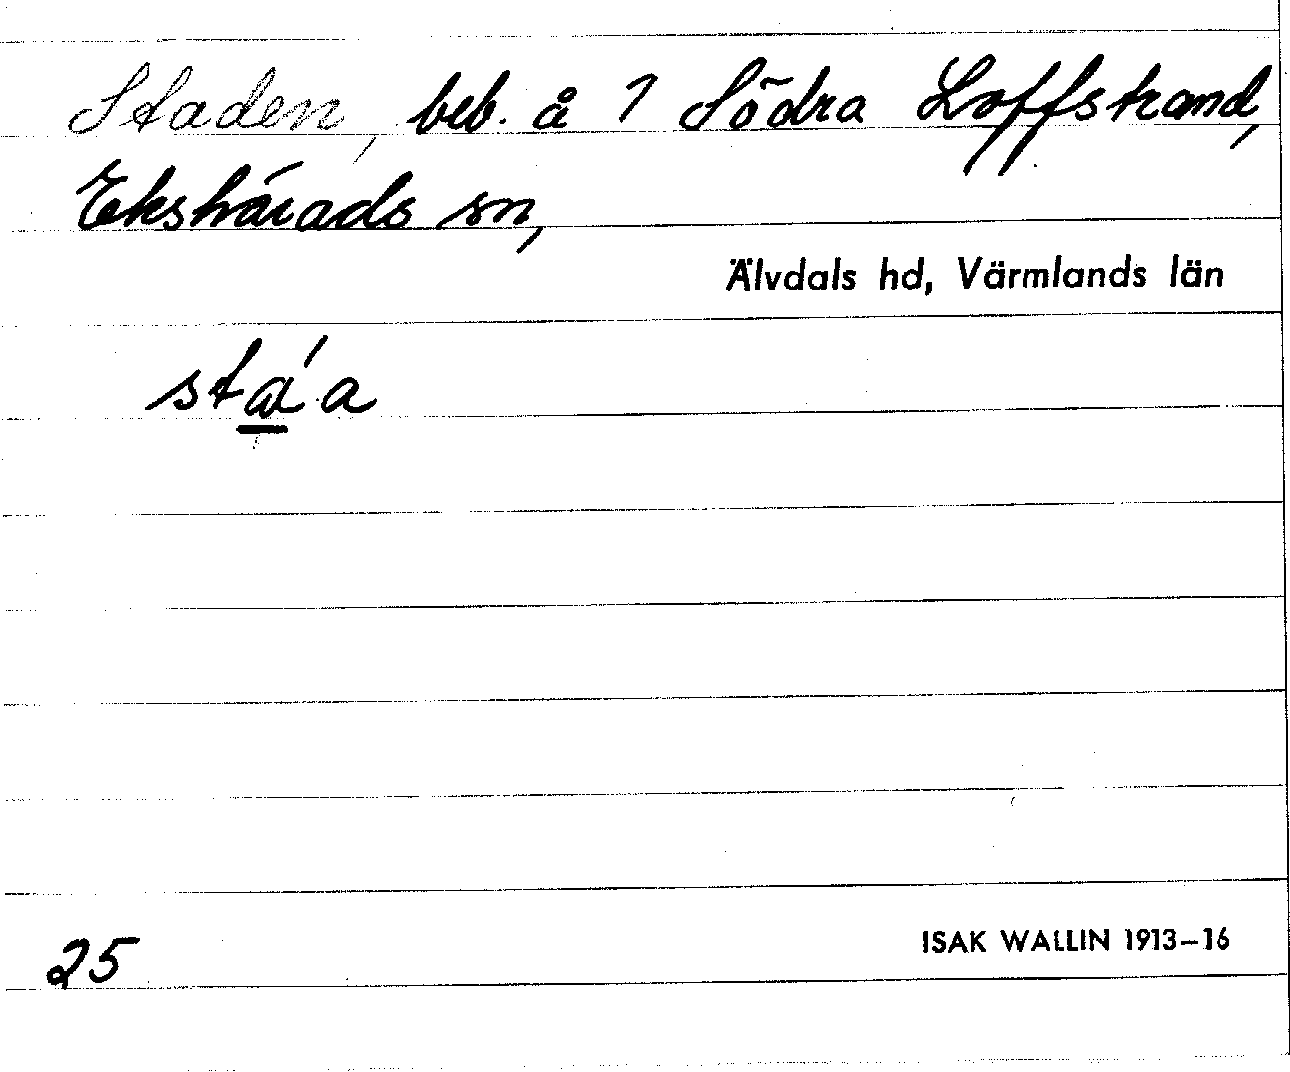 Staden, beb. å 1 Södra Loffstrand,
Ekshärads sn,
Älvdals hd, Värmlands län
sta̲´a
25
ISAK WALLIN 1913–16